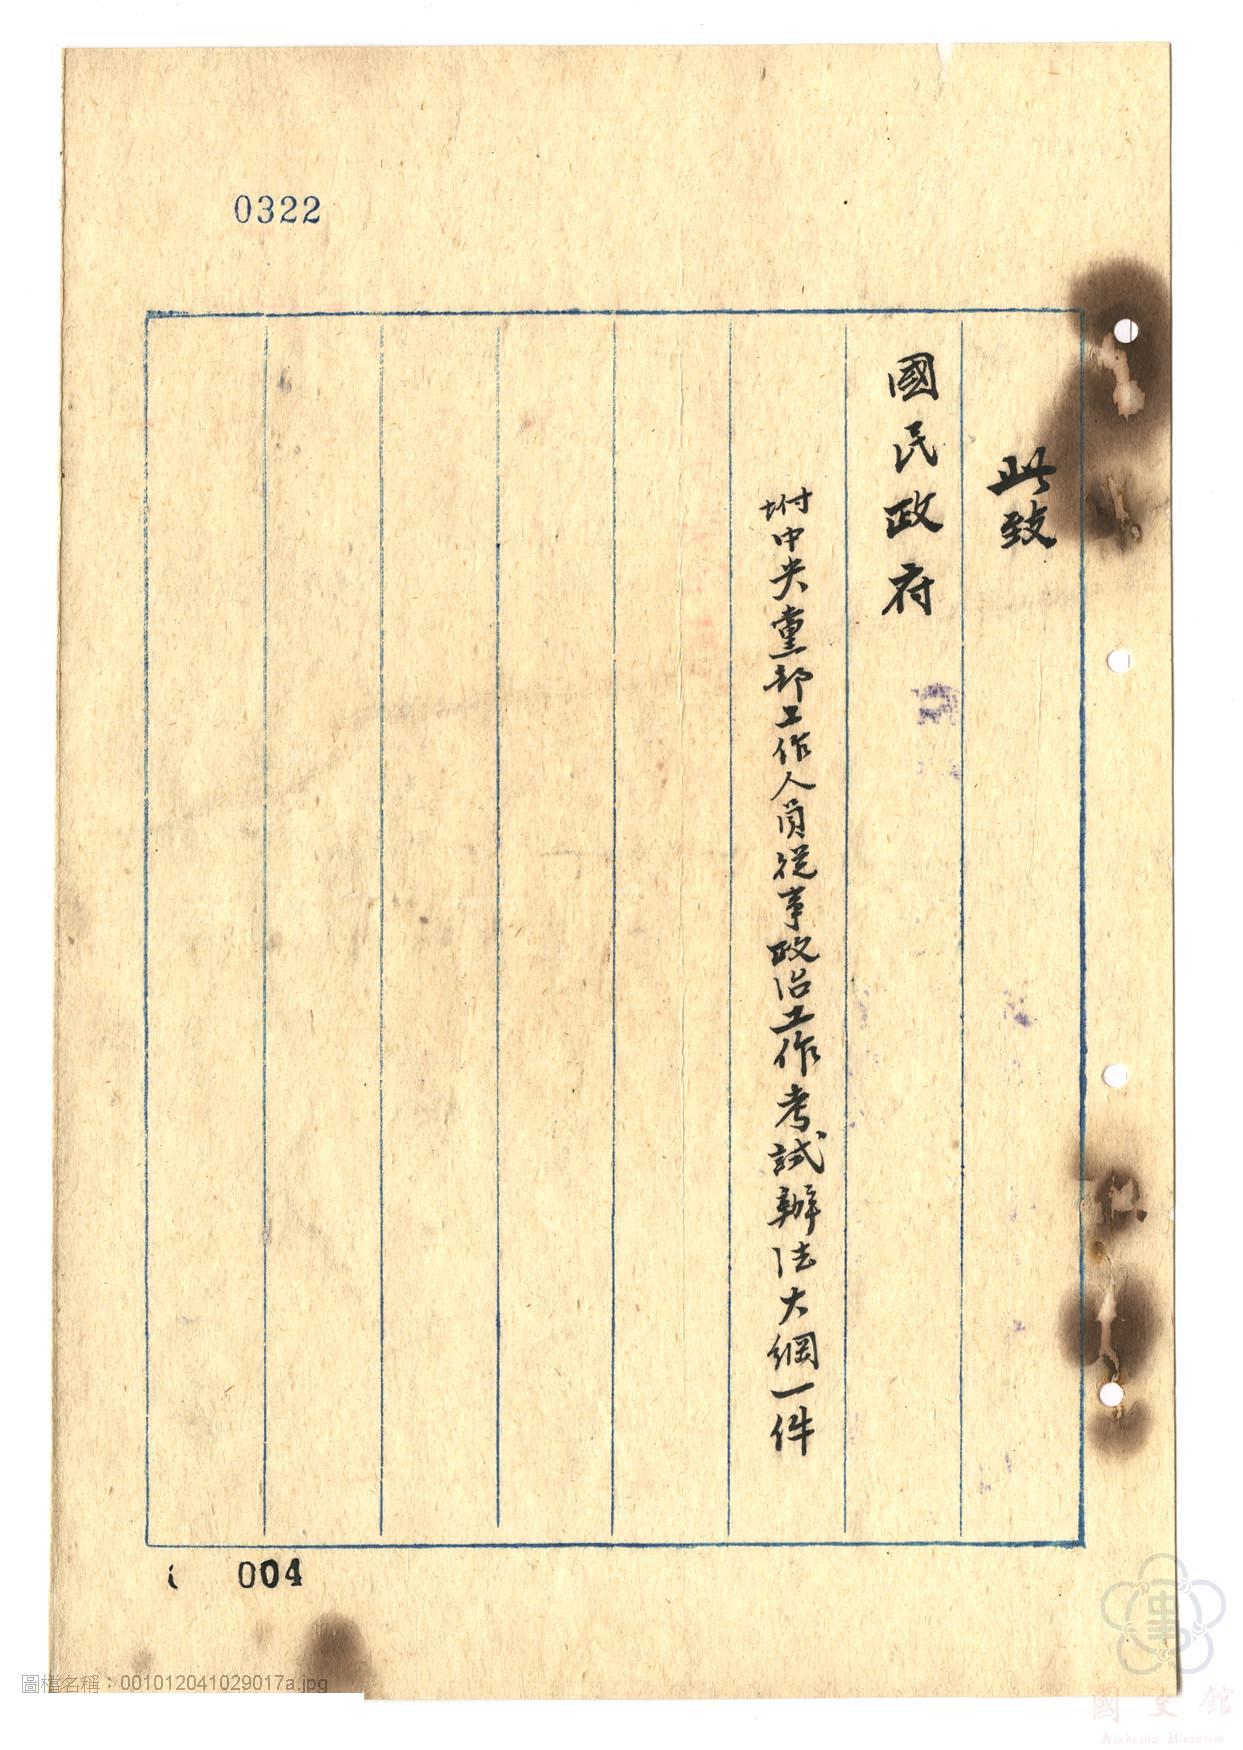 0322
此致
國民政府
坿中央黨部工作人員從事政治工作考試辦法大綱一件
004
圖檔名稱：001012041029017a.jpg
國史館
Academia Historica